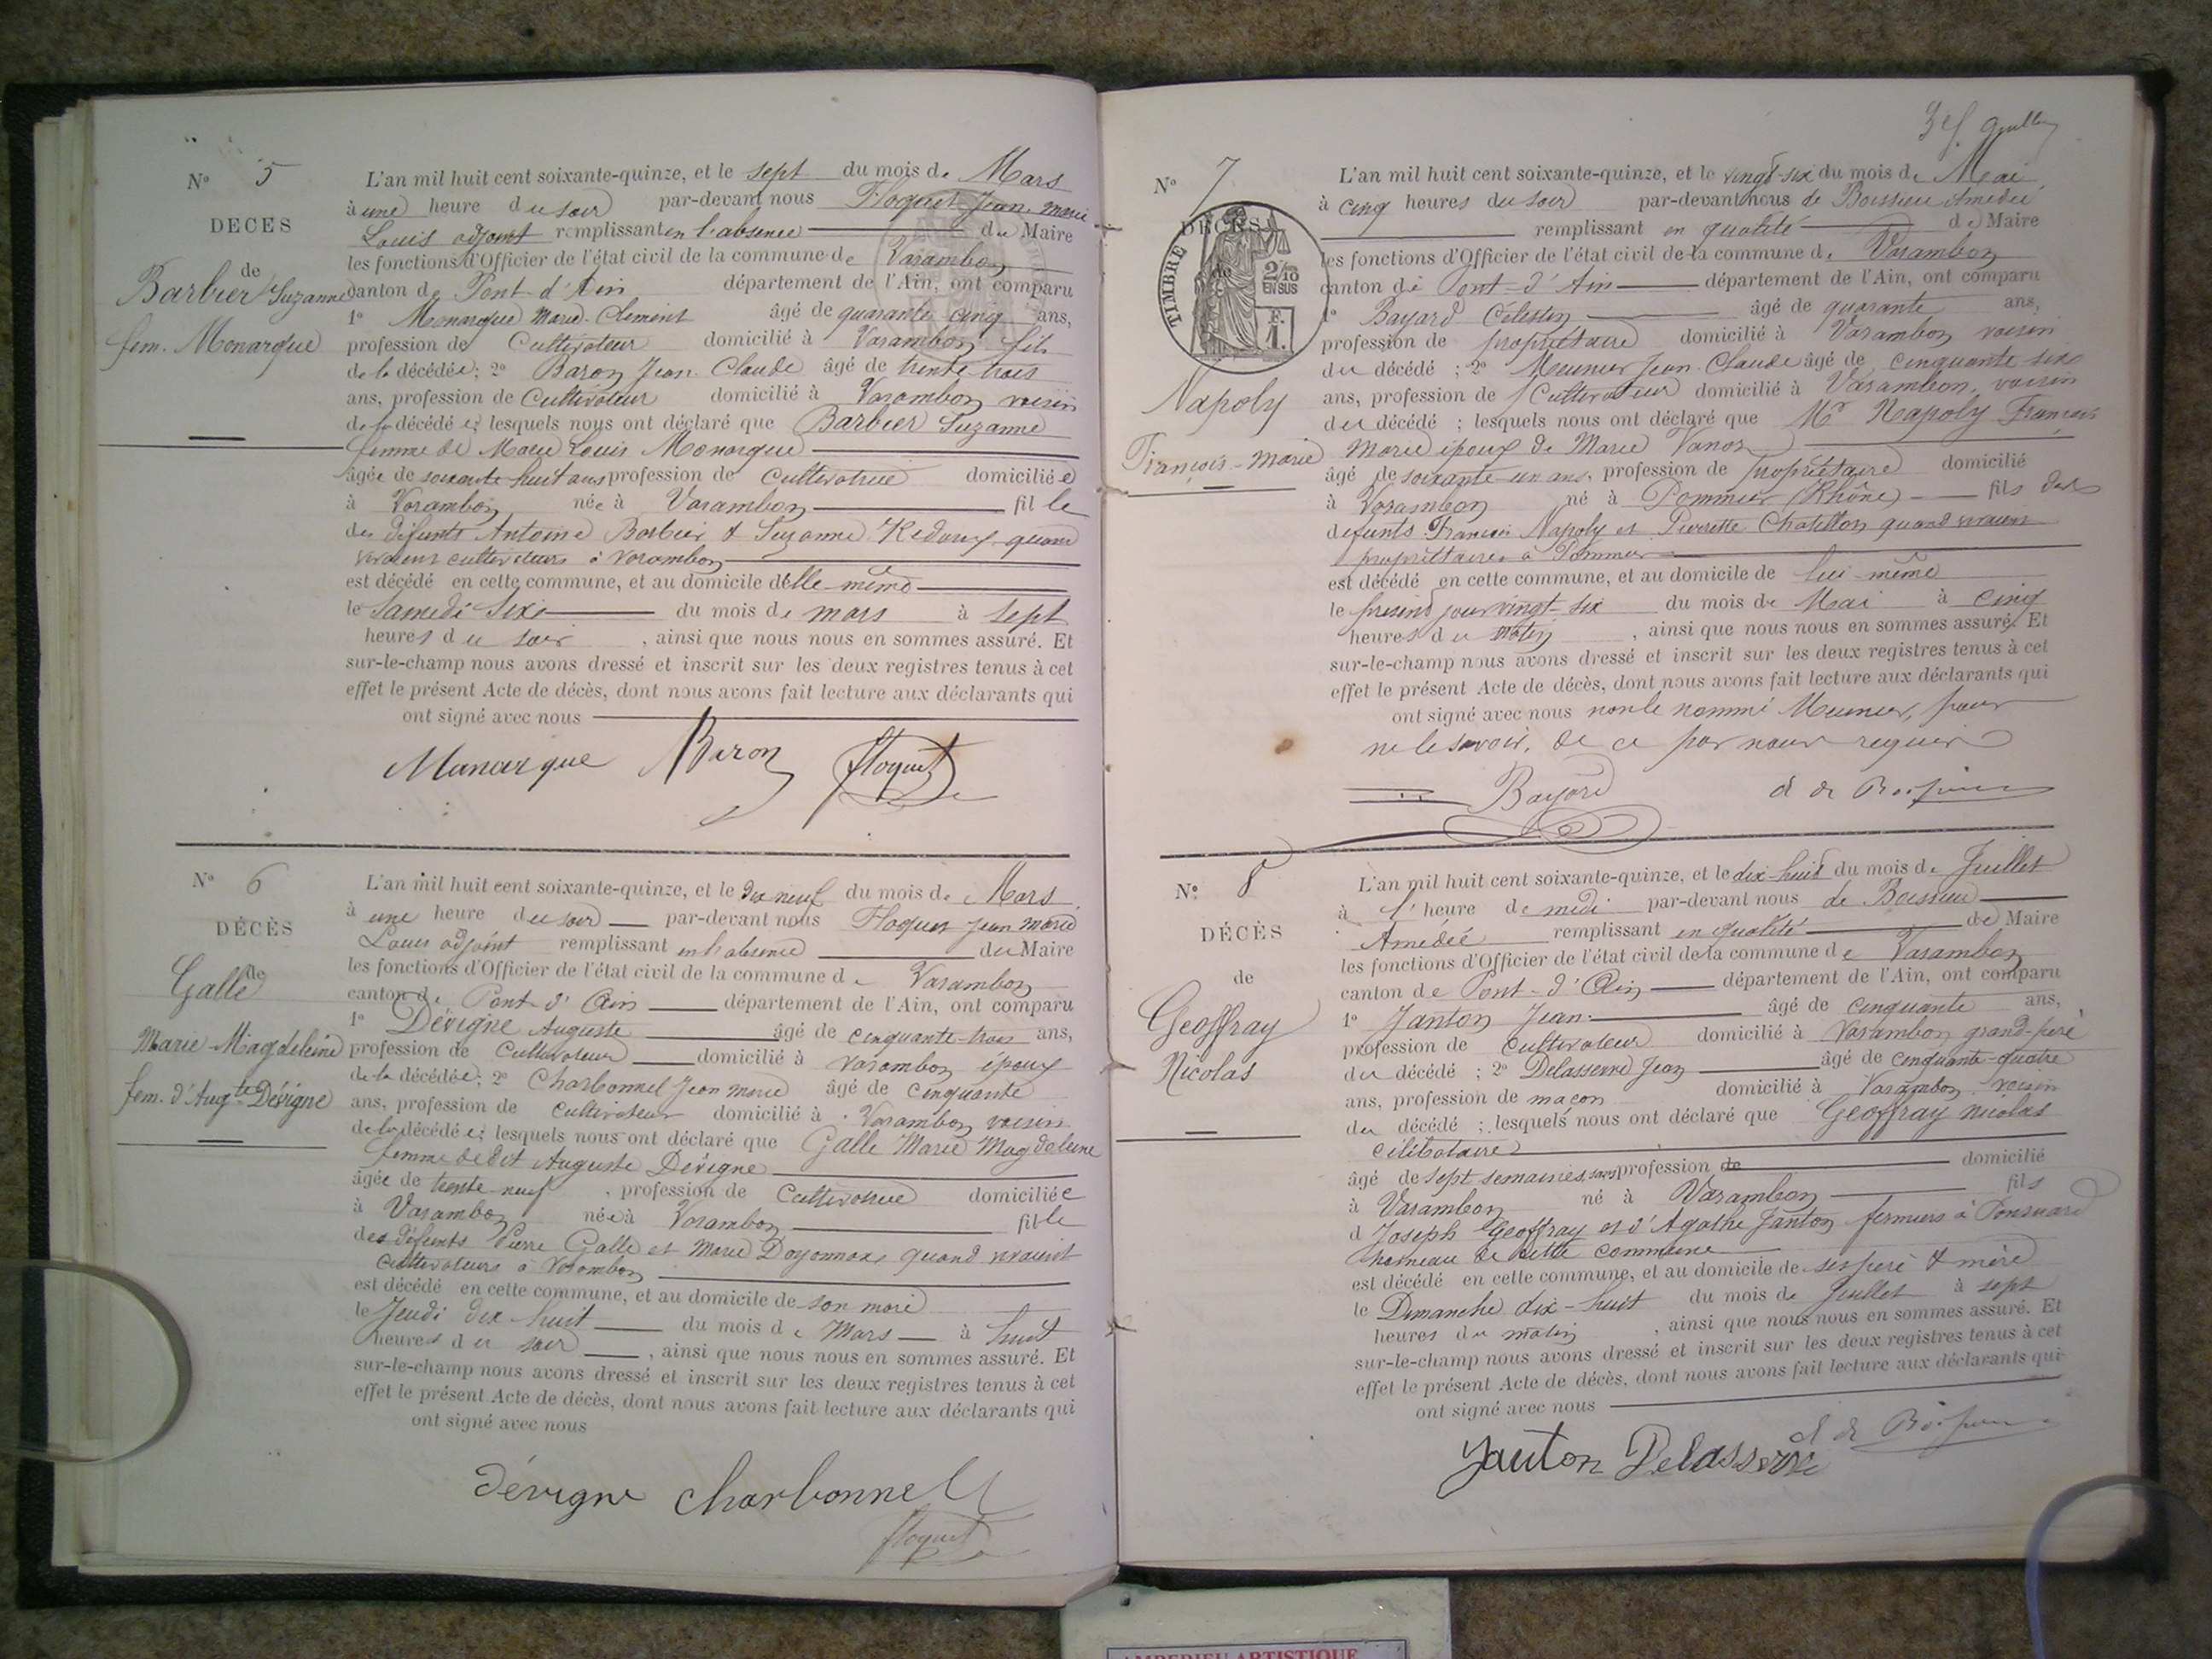 N° 5
DÉCÈS
de
Barbier Suzanne
fem. Monarque
L'an mil huit cent soixante-quinze, et le sept du mois de Mars
à une heure du soir par-devant nous Floquet Jean-Marie
Louis adjoint remplissant en l'absence du Maire
les fonctions d'Officier de l'état civil de la commune de Varambon
canton de Pont d'Ain département de l'Ain, ont comparu
1° Monarque Marie-Clément âgé de quarante cinq ans,
profession de Cultivateur domicilié à Varambon fils
de la décédée; 2° Baron Jean-Claude âgé de trente-trois
ans, profession de Cultivateur domicilié à Varambon voisin
de la décédée; lesquels nous ont déclaré que Barbier Suzanne
femme de Marie Louis Monarque
âgée de soixante huit ans profession de Cultivatrice domiciliée
à Varambon née à Varambon fille
des défunts Antoine Barbier & Suzanne quand
vivaient cultivateurs à Varambon
est décédé en cette commune, et au domicile d'elle-même
le Samedi Six du mois de mars à sept
heures du soir, ainsi que nous nous en sommes assuré. Et
sur-le-champ nous avons dressé et inscrit sur les deux registres tenus à cet
effet le présent Acte de décès, dont nous avons fait lecture aux déclarants qui
ont signé avec nous
Monarque Baron Floquet
N° 6
DÉCÈS
de
Galle
Marie-Magdeleine
fem. d'Aug.te Dévigne
L'an mil huit cent soixante-quinze, et le dix neuf du mois de Mars
à une heure du soir par-devant nous Floquet Jean Marie
Louis adjoint remplissant en l'absence du Maire
les fonctions d'Officier de l'état civil de la commune de Varambon
canton de Pont d'Ain département de l'Ain, ont comparu
1° Dévigne Auguste âgé de cinquante-trois ans,
profession de Cultivateur domicilié à Varambon époux
de la décédée; 2° Charbonnel Jean Marie âgé de cinquante
ans, profession de Cultivateur domicilié à Varambon voisin
de la décédée; lesquels nous ont déclaré que Galle Marie Magdeleine
femme dedit Auguste Dévigne
âgée de trente-neuf, profession de Cultivatrice domiciliée
à Varambon née à Varambon fille
des défunts Pierre Galle et Marie Doyonnax quand vivaient
cultivateurs à Varambon
est décédé en cette commune, et au domicile de son mari
le Jeudi dix-huit du mois de Mars à huit
heures du soir, ainsi que nous nous en sommes assuré. Et
sur-le-champ nous avons dressé et inscrit sur les deux registres tenus à cet
effet le présent Acte de décès, dont nous avons fait lecture aux déclarants qui
ont signé avec nous
Dévigne Charbonnel
Floquet
N° 7
DÉCÈS
de
TIMBRE
2/10 EN SUS
F. 1.
Napoly
François-Marie
L'an mil huit cent soixante-quinze, et le vingt-six du mois de Mai
à cinq heures du soir par-devant nous de Boissieu Amédée
remplissant en qualité de Maire
les fonctions d'Officier de l'état civil de la commune de Varambon
canton de Pont-d'Ain département de l'Ain, ont comparu
1° Bayard Célestin âgé de quarante ans,
profession de propriétaire domicilié à Varambon voisin
du décédé; 2° Meunier Jean-Claude âgé de cinquante six
ans, profession de Cultivateur domicilié à Varambon, voisin
du décédé; lesquels nous ont déclaré que Mr Napoly François
Marie époux de Marie
âgé de soixante-un ans, profession de propriétaire domicilié
à Varambon né à Pommier (Rhône) fils des
défunts François Napoly et Pierrette Chatillon quand vivaient
propriétaires à Pommier
est décédé en cette commune, et au domicile de lui-même
le présent jour vingt-six du mois de Mai à cinq
heures du matin, ainsi que nous nous en sommes assuré. Et
sur-le-champ nous avons dressé et inscrit sur les deux registres tenus à cet
effet le présent Acte de décès, dont nous avons fait lecture aux déclarants qui
ont signé avec nous non le nommé Meunier, pour
ne le savoir, de ce par nous requis
Bayard A de Boissieu
N° 8
DÉCÈS
de
Geoffray
Nicolas
L'an mil huit cent soixante-quinze, et le dix-huit du mois de Juillet
à l'heure de midi par-devant nous de Boissieu
Amédée remplissant en qualité de Maire
les fonctions d'Officier de l'état civil de la commune de Varambon
canton de Pont-d'Ain département de l'Ain, ont comparu
1° Janton Jean âgé de cinquante ans,
profession de Cultivateur domicilié à Varambon grand-père
du décédé; 2° Delasserre Jean âgé de cinquante-quatre
ans, profession de maçon domicilié à Varambon voisin
du décédé; lesquels nous ont déclaré que Geoffray Nicolas
célibataire
âgé de sept semaines, sans profession de domicilié
à Varambon né à Varambon fils
d Joseph Geoffray et d'Agathe Janton fermiers à
hameau de cette commune
est décédé en cette commune, et au domicile de ses père & mère
le Dimanche dix-huit du mois de Juillet à sept
heures du matin, ainsi que nous nous en sommes assuré. Et
sur-le-champ nous avons dressé et inscrit sur les deux registres tenus à cet
effet le présent Acte de décès, dont nous avons fait lecture aux déclarants qui
ont signé avec nous
Janton Delasserre A de Boissieu
AMBERIEU ARTISTIQUE